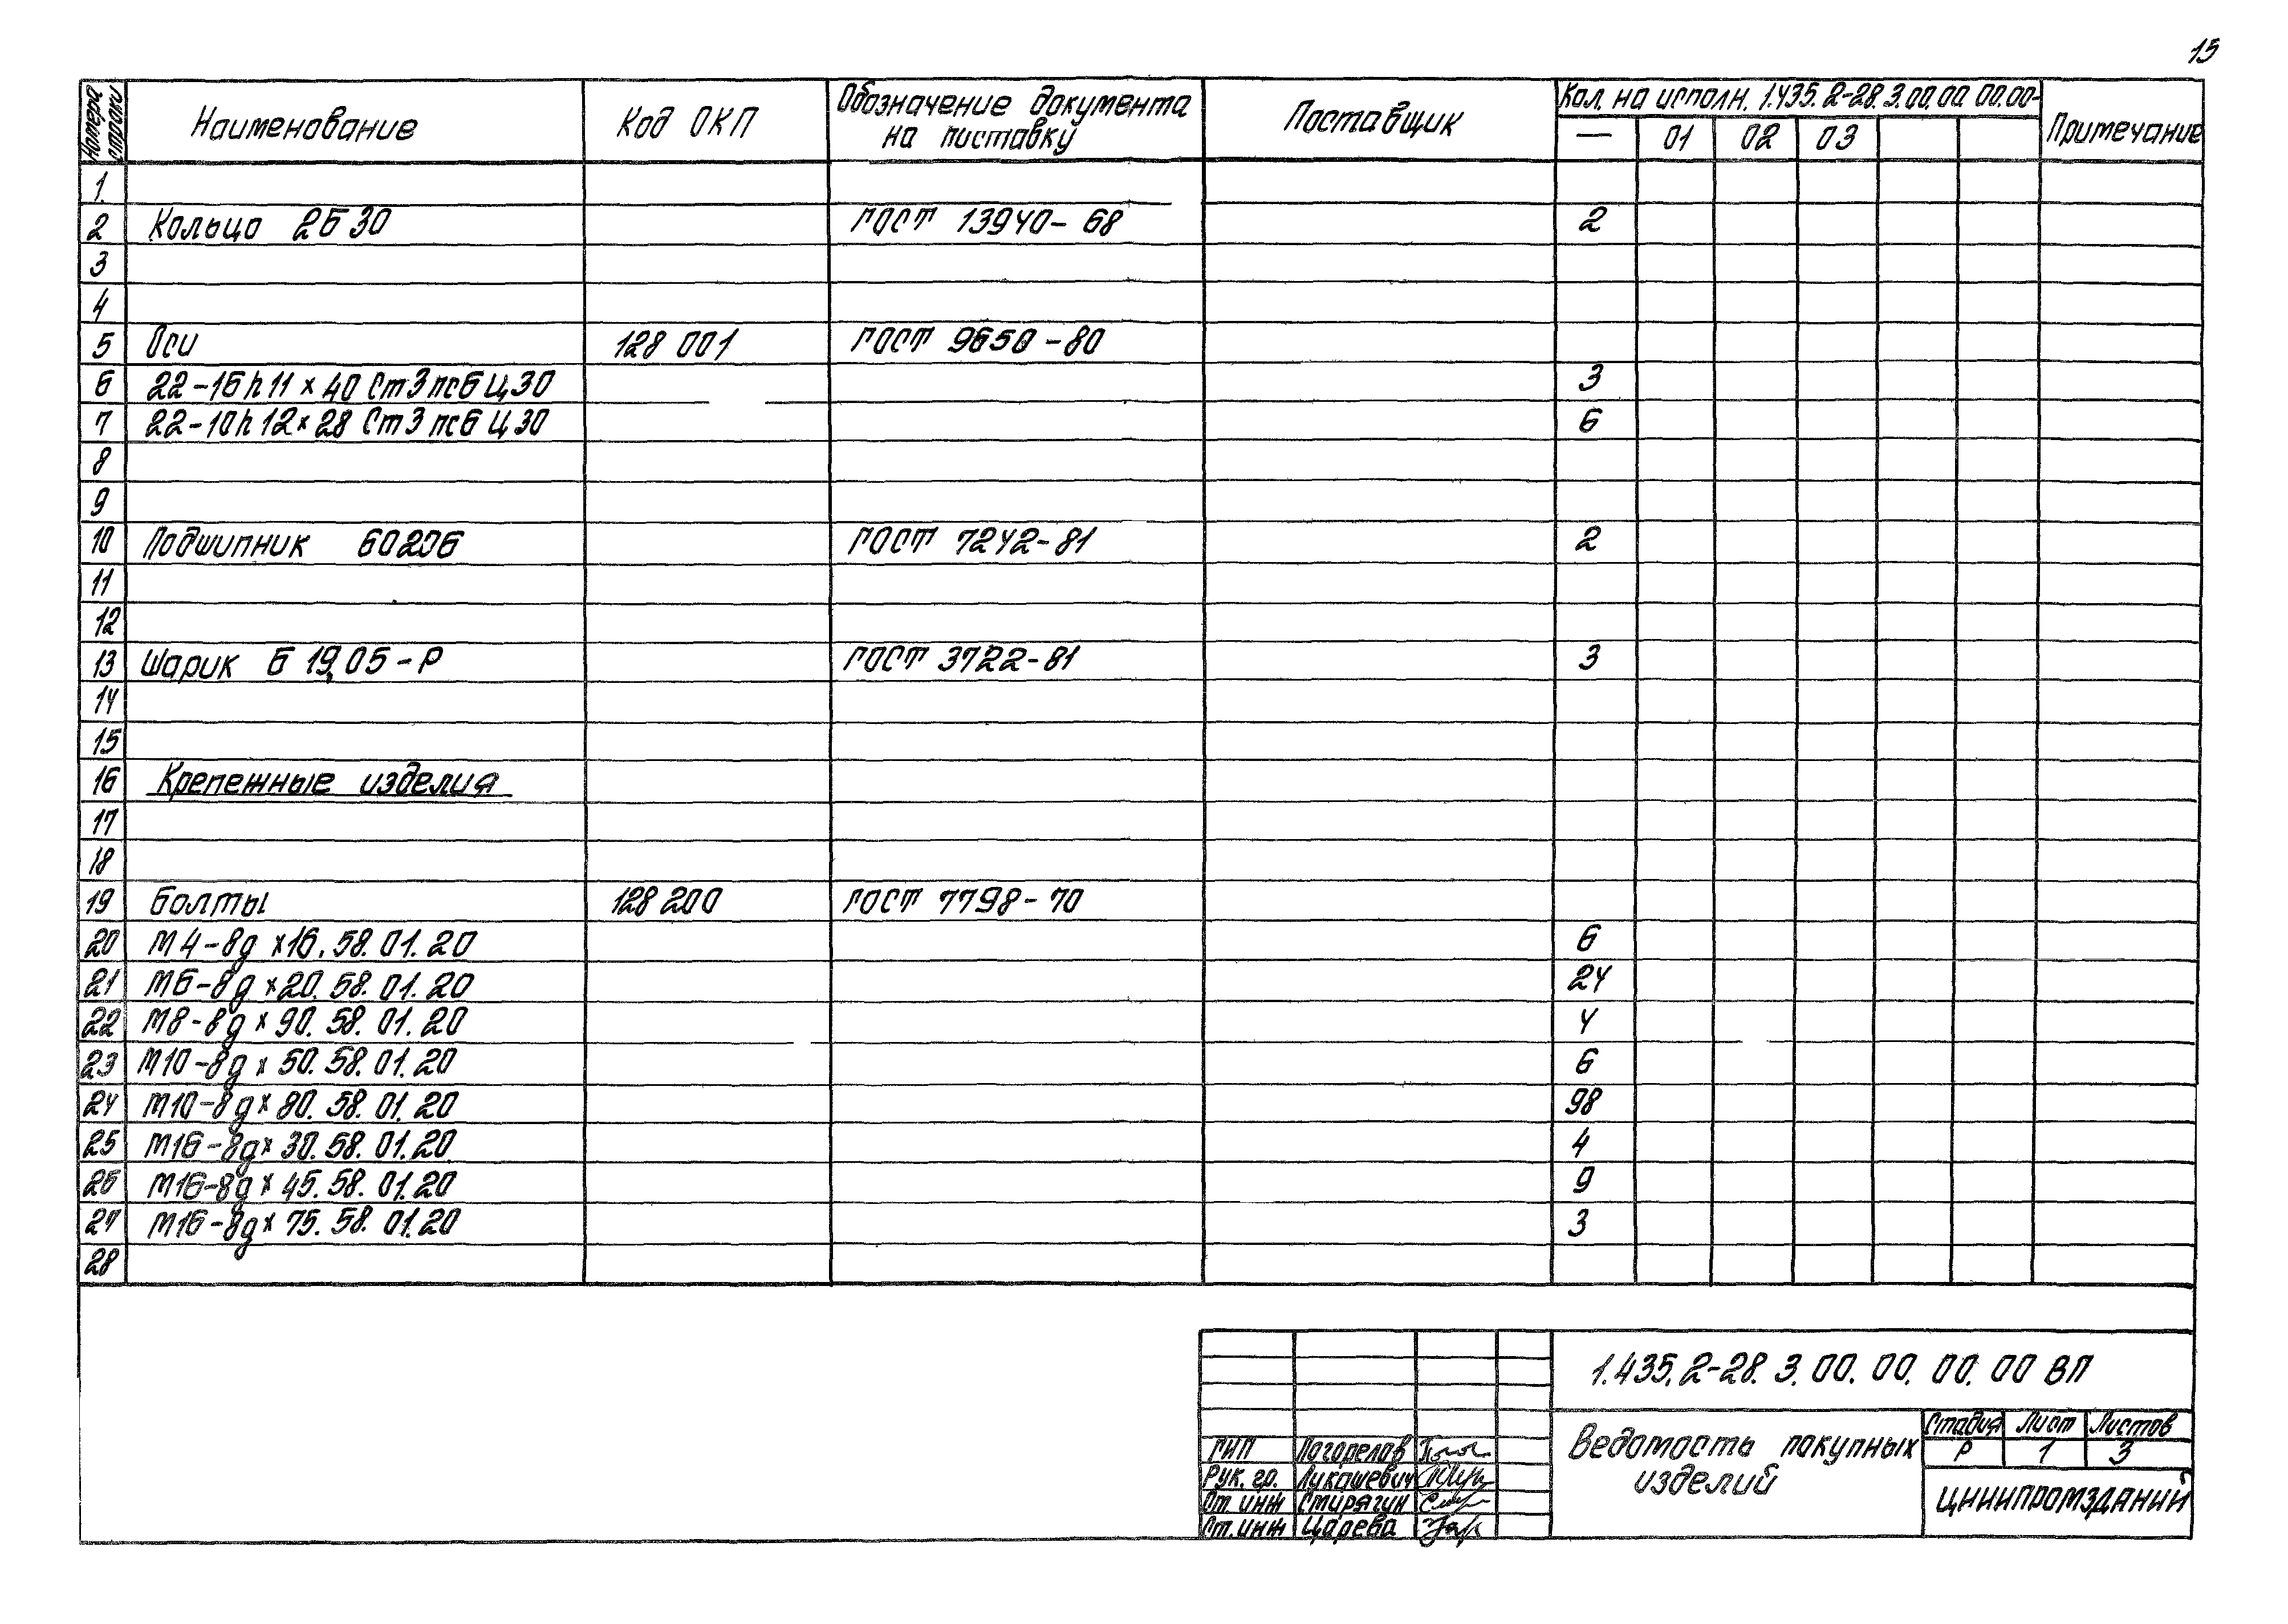 15
Номера строки
Наименование
Код ОКП
Обозначение документа
на поставку
Поставщик
Кол. на исполн. 1.435.2-28.3.00.00 00.00-
— 01 02 03
Примечание
1.
2 Кольцо 2Б30 ГОСТ 13940-68 2
3
4
5 Оси 128 001 ГОСТ 9650-80
6 22-16h11 x 40 Ст3пс6 Ц30 3
7 22-10h12 x 28 Ст3пс6 Ц30 6
8
9
10 Подшипник 60206 ГОСТ 7242-81 2
11
12
13 Шарик Б 19,05-Р ГОСТ 3722-81 3
14
15
16 Крепежные изделия
17
18
19 Болты 128 200 ГОСТ 7798-70
20 М4-8g x16.58.01.20 6
21 М6-8g x20.58.01.20 24
22 М8-8g x 90.58.01.20 4
23 М10-8g x 50.58.01.20 6
24 М10-8g x 80.58.01.20 98
25 М16-8g x 30.58.01.20 4
26 М16-8g x 45.58.01.20 9
27 М16-8g x 75.58.01.20 3
28
1.435.2-28.3.00.00.00.00 ВП
Ведомость покупных
изделий
Стадия Лист Листов
Р 1 3
ЦНИИПРОМЗДАНИЙ
ГИП Погорелов
Рук. гр. Лукашевич
Ст. инж Стирягин
Ст. инж Царева